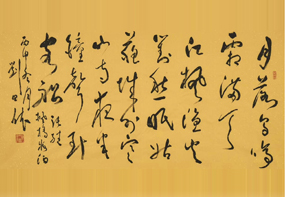 月落乌啼
霜满天
江枫渔火
对愁眠姑
苏城外寒
山寺夜半
钟声到
客船 张继
枫桥夜泊
丙申冬月
刘